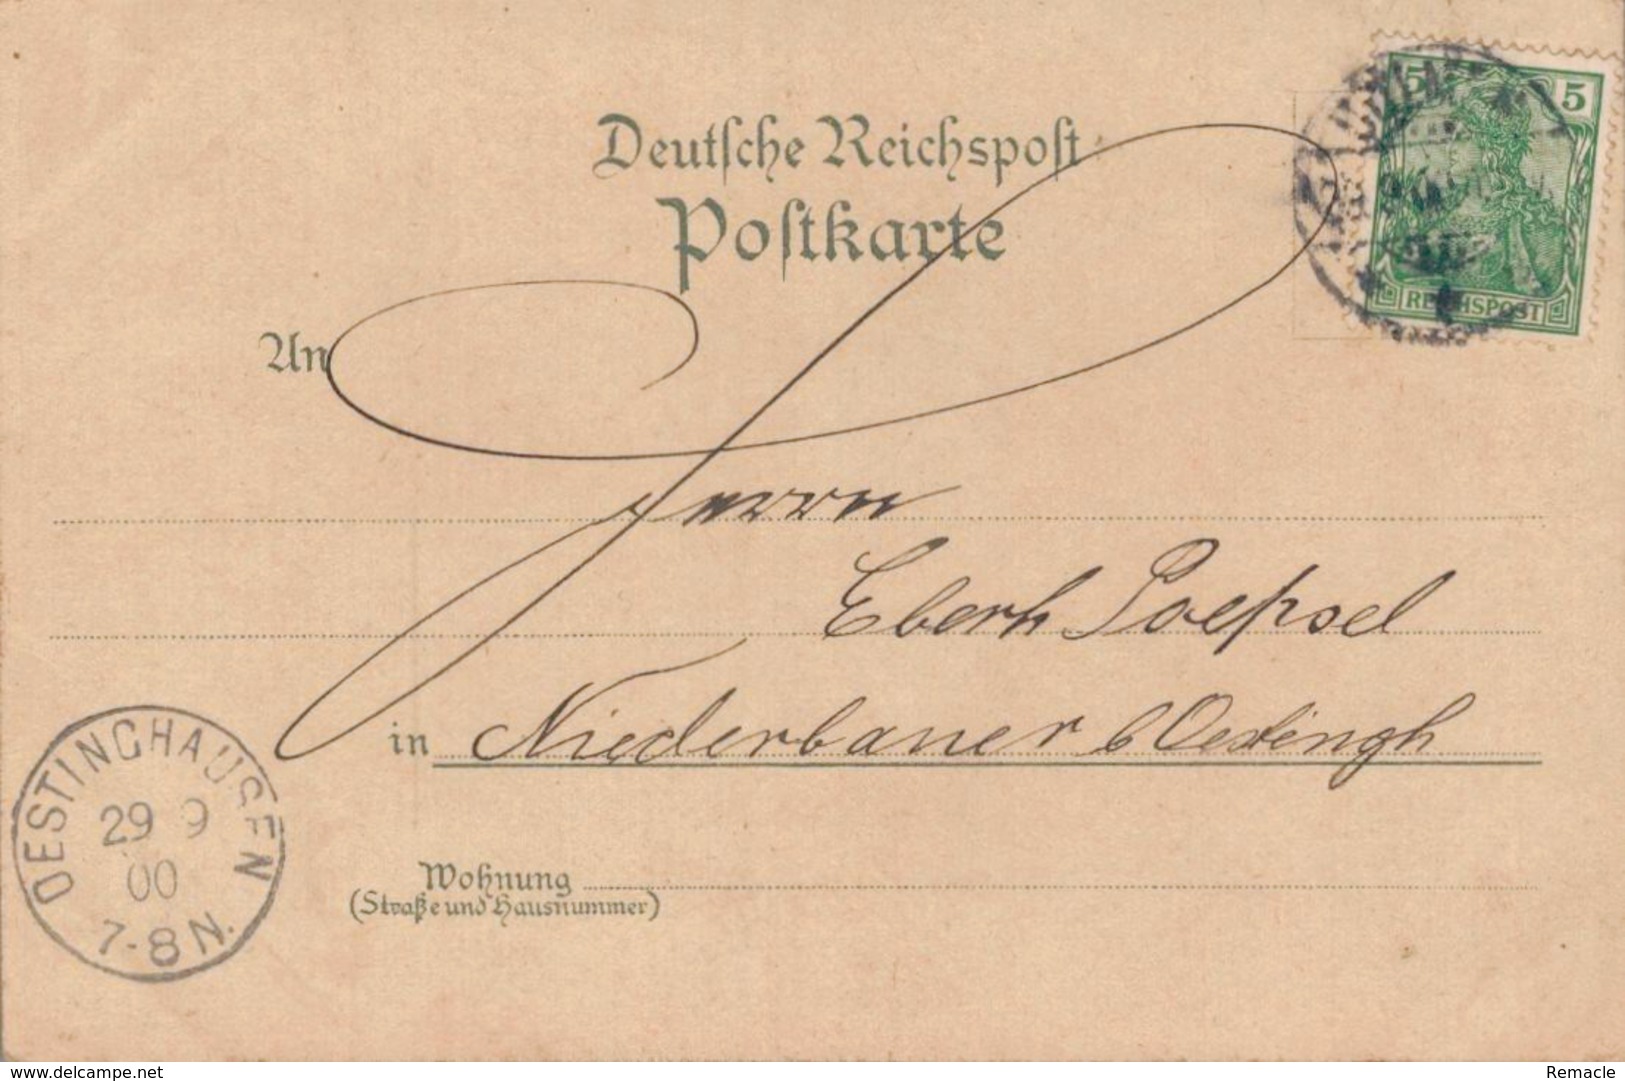 Deutsche Reichspost
Postkarte
5 5
REICHSPOST
An
Herrn
Eberh Poepsel
in Niederbauer b Oestingh
OESTINGHAUSEN
29 9
00
7-8 N.
Wohnung
(Straße und Hausnummer)
www.delcampe.net
Remacle